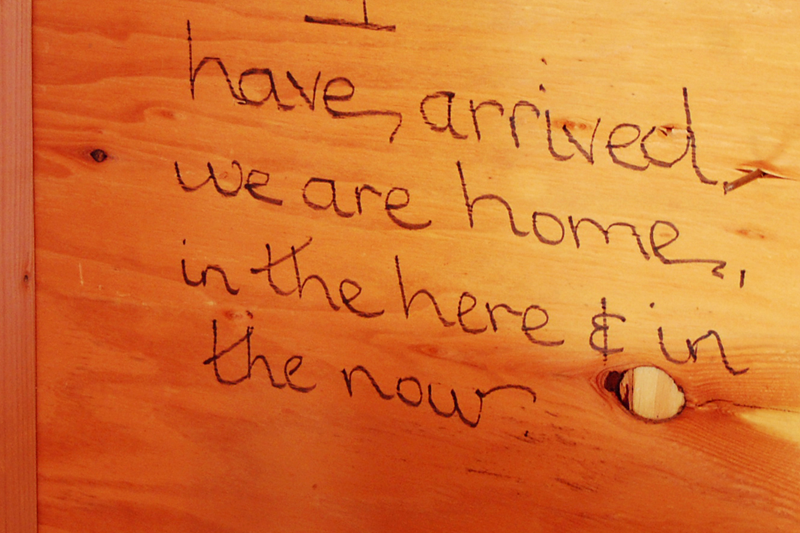 I
have, arrived,
we are home,
in the here & in
the now